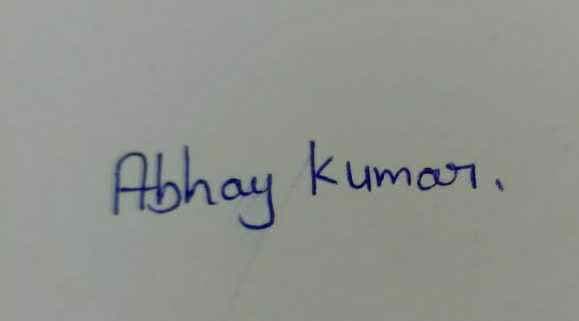 Abhay kumar.